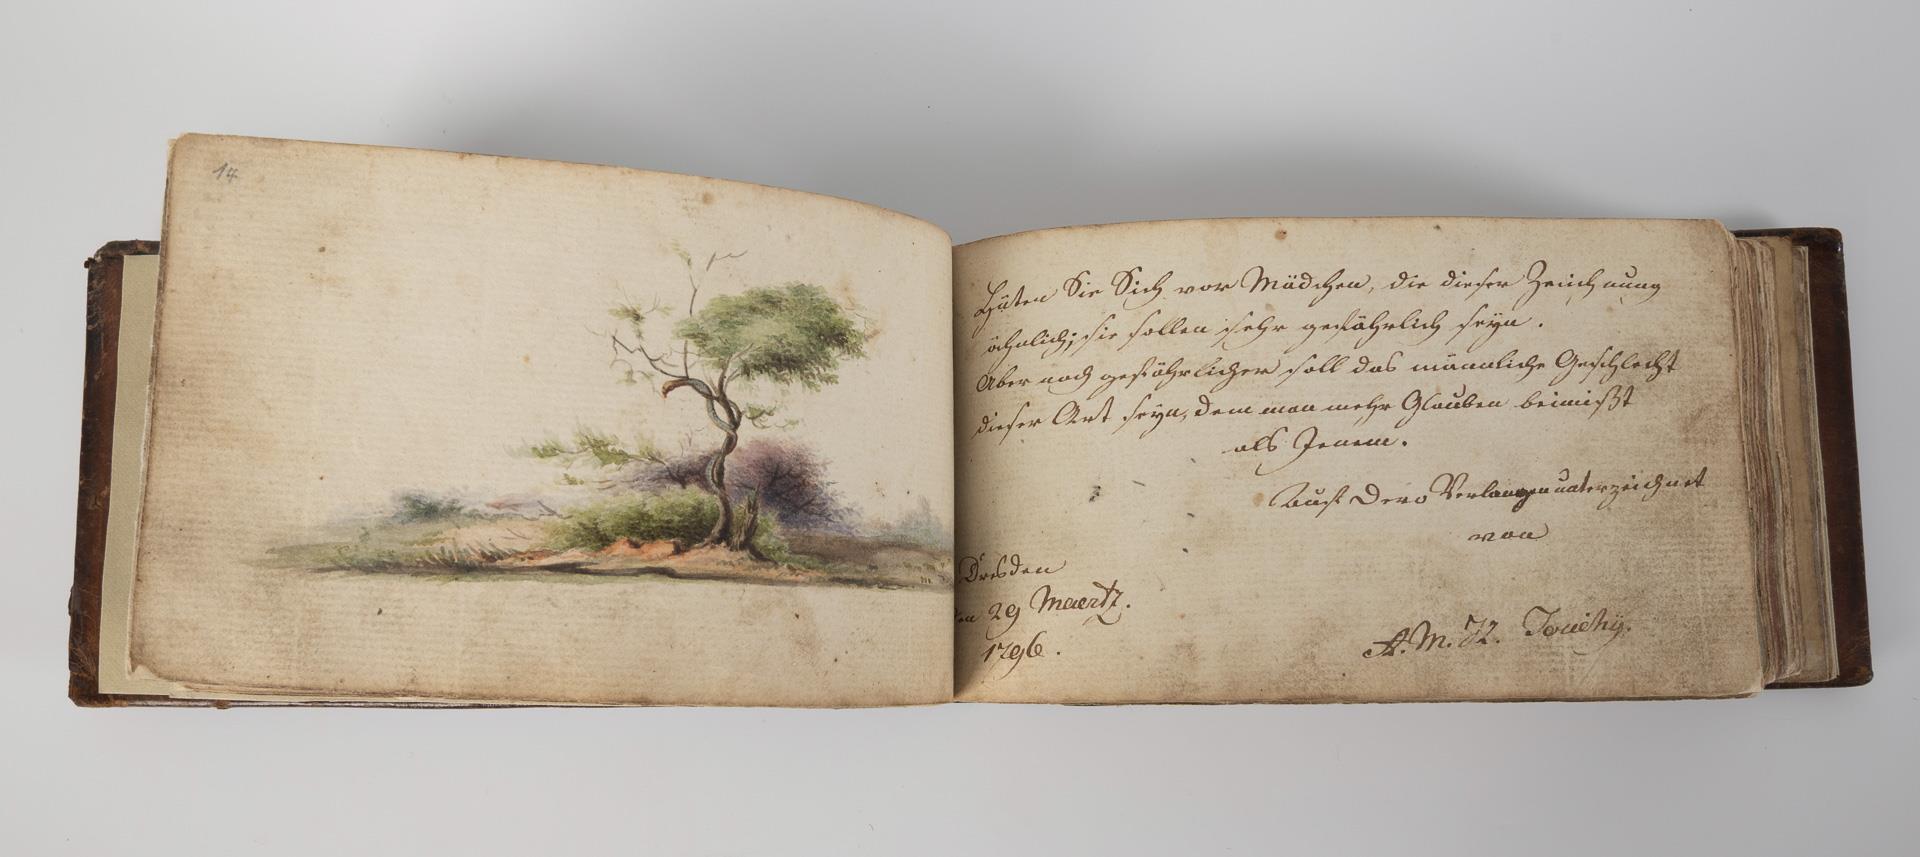 14
Hüten Sie Sich vor Mädchen, die dieser Zeichnung
ähnlich; sie sollen sehr gefährlich seyn.
Aber noch gefährlicher soll das männliche Geschlecht
dieser Art seyn, dem man mehr Glauben beimißt
als Jenem.
Auf Dero Verlangen unterzeichnet
von
Dresden
den 29 Maertz.
1796.
A. M. Touchy.